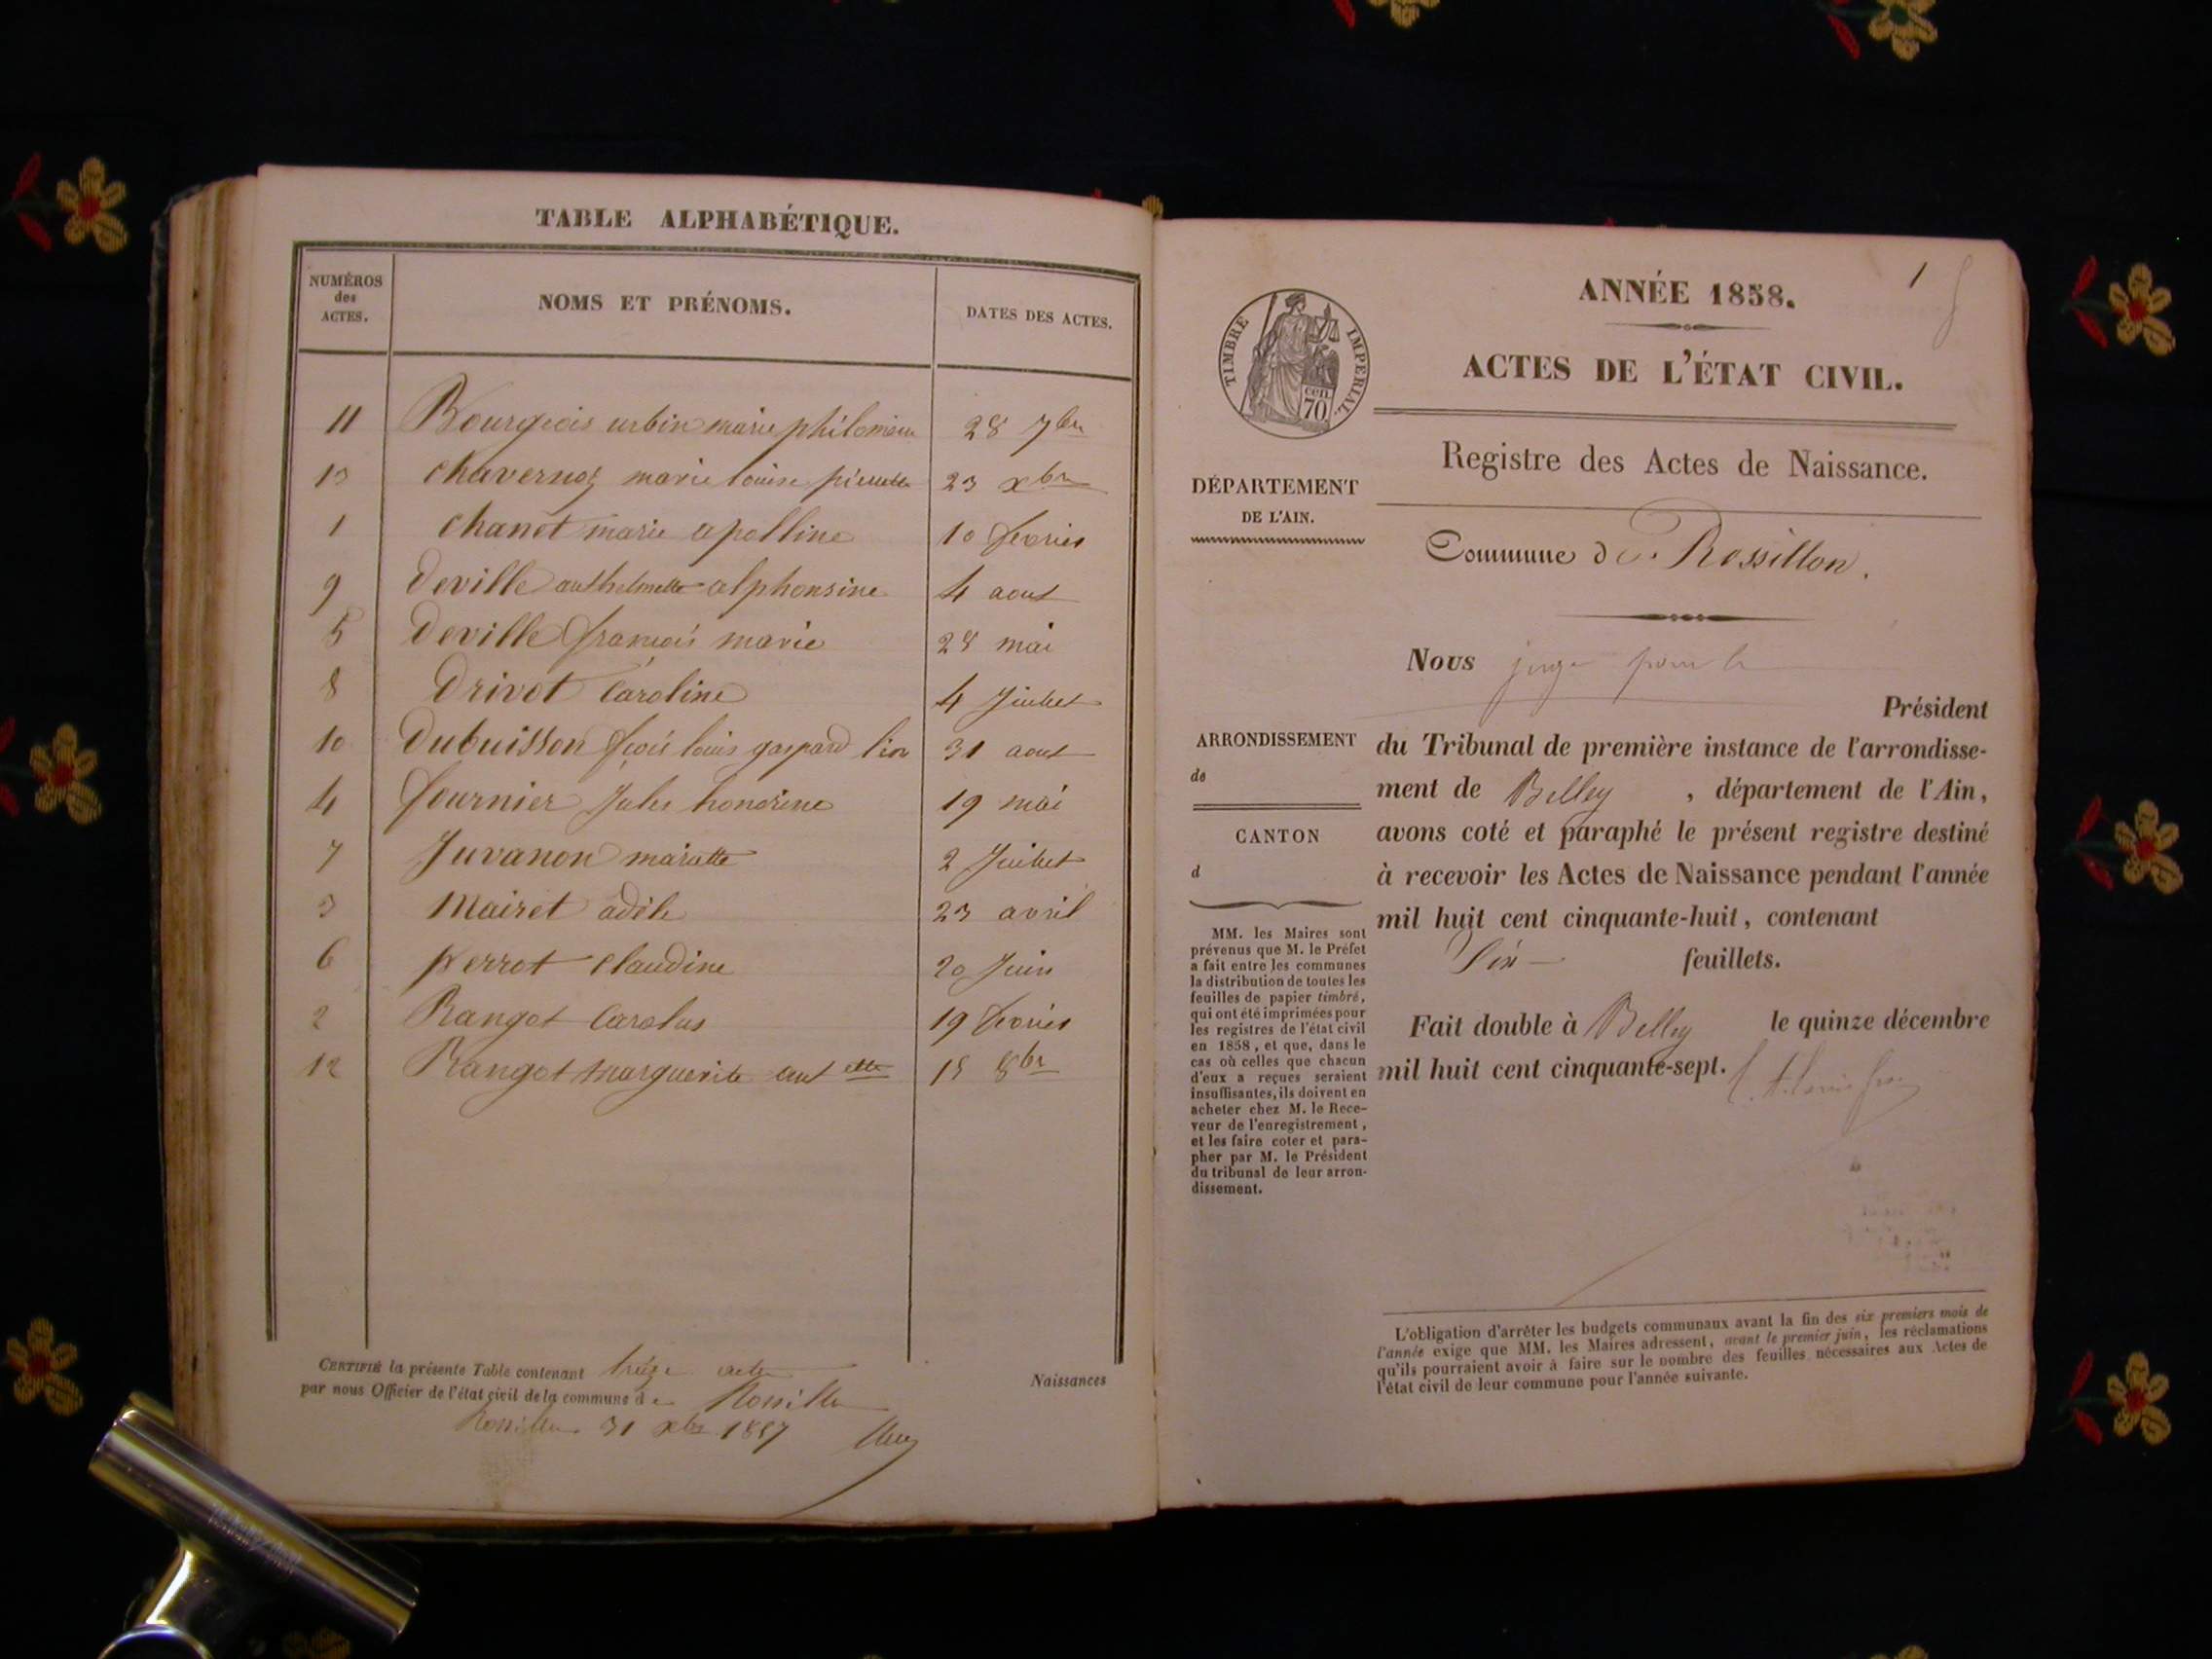 TABLE ALPHABÉTIQUE.
NUMÉROS des ACTES.
NOMS ET PRÉNOMS.
DATES DES ACTES.
11 Bourgeois urbin marie philomène 28 7bre
13 Chavernoz marie louise pierrette 23 xbre
1 Chanet marie apolline 10 fevrier
9 Deville anthelmette alphonsine 4 aout
5 Deville françois marie 28 mai
8 Drivot Caroline 4 Juillet
10 Dubuisson fçois louis gaspard 31 aout
4 fournier Jules honorine 19 mai
7 Juvanon mariette 2 Juillet
3 Mairet adèle 23 avril
6 perrot Claudine 20 Juin
2 Rangot Carolus 19 fevrier
12 Rangot Marguerite ant ette 15 8bre
CERTIFIÉ la présente Table contenant treize actes
par nous Officier de l'état civil de la commune de Rossillon
Rossillon 31 xbre 1857
Naissances
1
ANNÉE 1858.
TIMBRE IMPÉRIAL
CEN. 70
ACTES DE L'ÉTAT CIVIL.
Registre des Actes de Naissance.
DÉPARTEMENT
DE L'AIN.
Commune de Rossillon.
Nous juge pour le
Président
ARRONDISSEMENT
de
du Tribunal de première instance de l'arrondisse-
ment de Belley , département de l'Ain,
CANTON
d
avons coté et paraphé le présent registre destiné
à recevoir les Actes de Naissance pendant l'année
mil huit cent cinquante-huit, contenant
feuillets.
Fait double à Belley le quinze décembre
mil huit cent cinquante-sept.
MM. les Maires sont
prévenus que M. le Préfet
a fait entre les communes
la distribution de toutes les
feuilles de papier timbré,
qui ont été imprimées pour
les registres de l'état civil
en 1858, et que, dans le
cas où celles que chacun
d'eux a reçues seraient
insuffisantes, ils doivent en
acheter chez M. le Rece-
veur de l'enregistrement,
et les faire coter et para-
pher par M. le Président
du tribunal de leur arron-
dissement.
L'obligation d'arrêter les budgets communaux avant la fin des six premiers mois de
l'année exige que MM. les Maires adressent, avant le premier juin, les réclamations
qu'ils pourraient avoir à faire sur le nombre des feuilles nécessaires aux Actes de
l'état civil de leur commune pour l'année suivante.